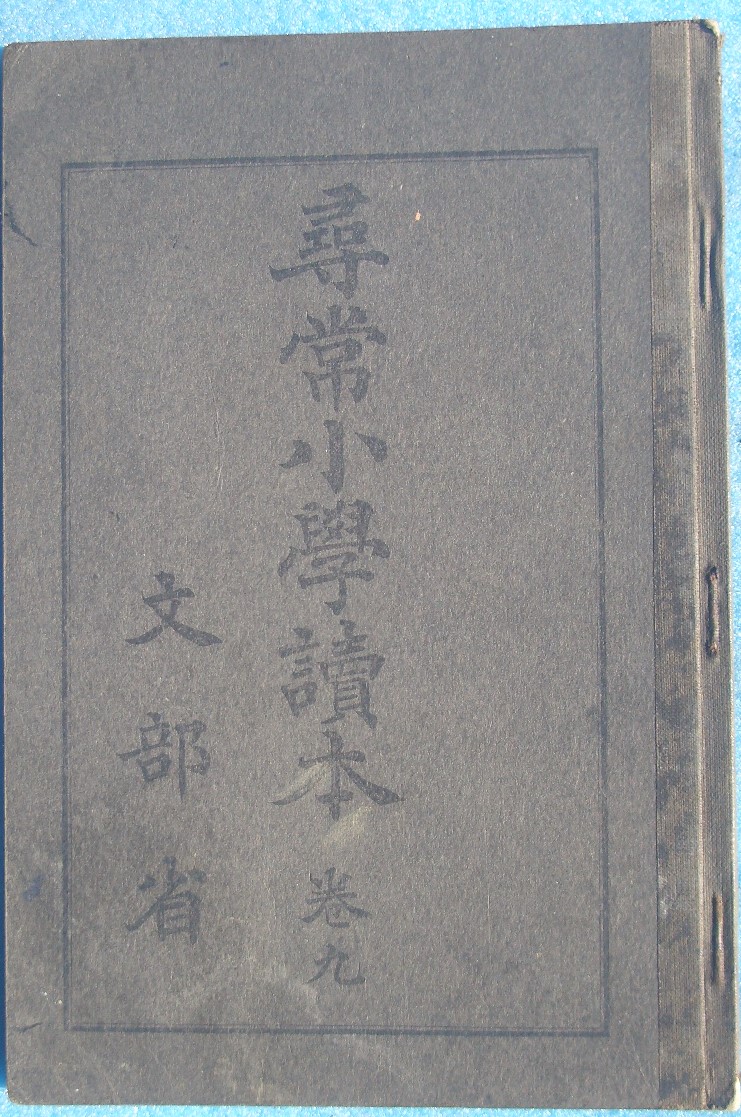 尋常小學讀本 卷九
文部省